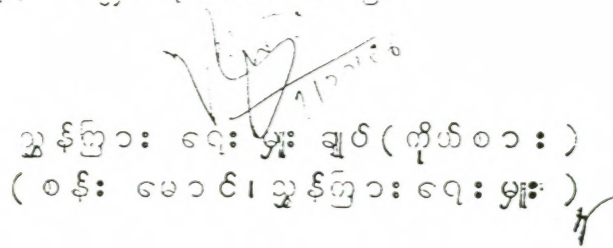 ညွှန်ကြား ရေး မှူး ချုပ် ( ကိုယ်စား )
( စန်း မောင်၊ ညွှန်ကြား ရေး မှူး )